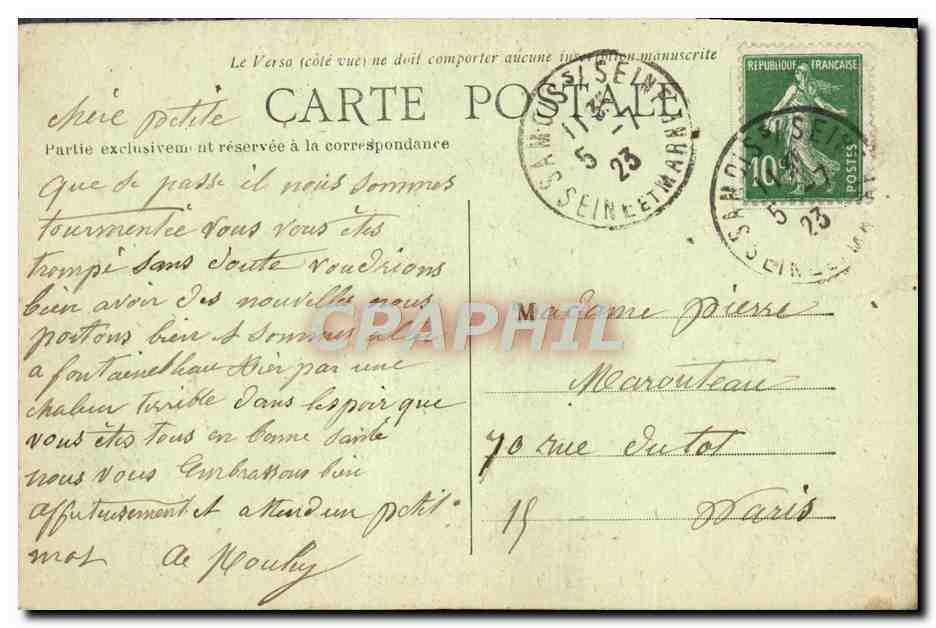 Le Verso (côté vue) ne doit comporter aucune inscription manuscrite
CARTE POSTALE
Partie exclusivement réservée à la correspondance
chère petite
que se passe il nous sommes
tourmentée vous vous êtes
trompé sans doute voudrions
bien avoir des nouvelles nous
portons bien sommes
a fontainebleau hier par une
chaleur terrible dans lespoir que
vous êtes tous en bonne santé
nous vous Embrassons bien
affectueusement et attend un petit
mot de
SAMOIS S/ SEINE
11 35
5 -7
23
SEINE ET MARNE
REPUBLIQUE FRANÇAISE
10c
POSTES
SAMOIS S/ SEINE
5 -7
23
SEINE ET MARNE
Madame pierre
Marouteau
70 rue dutot
15 Paris
CPAPHIL